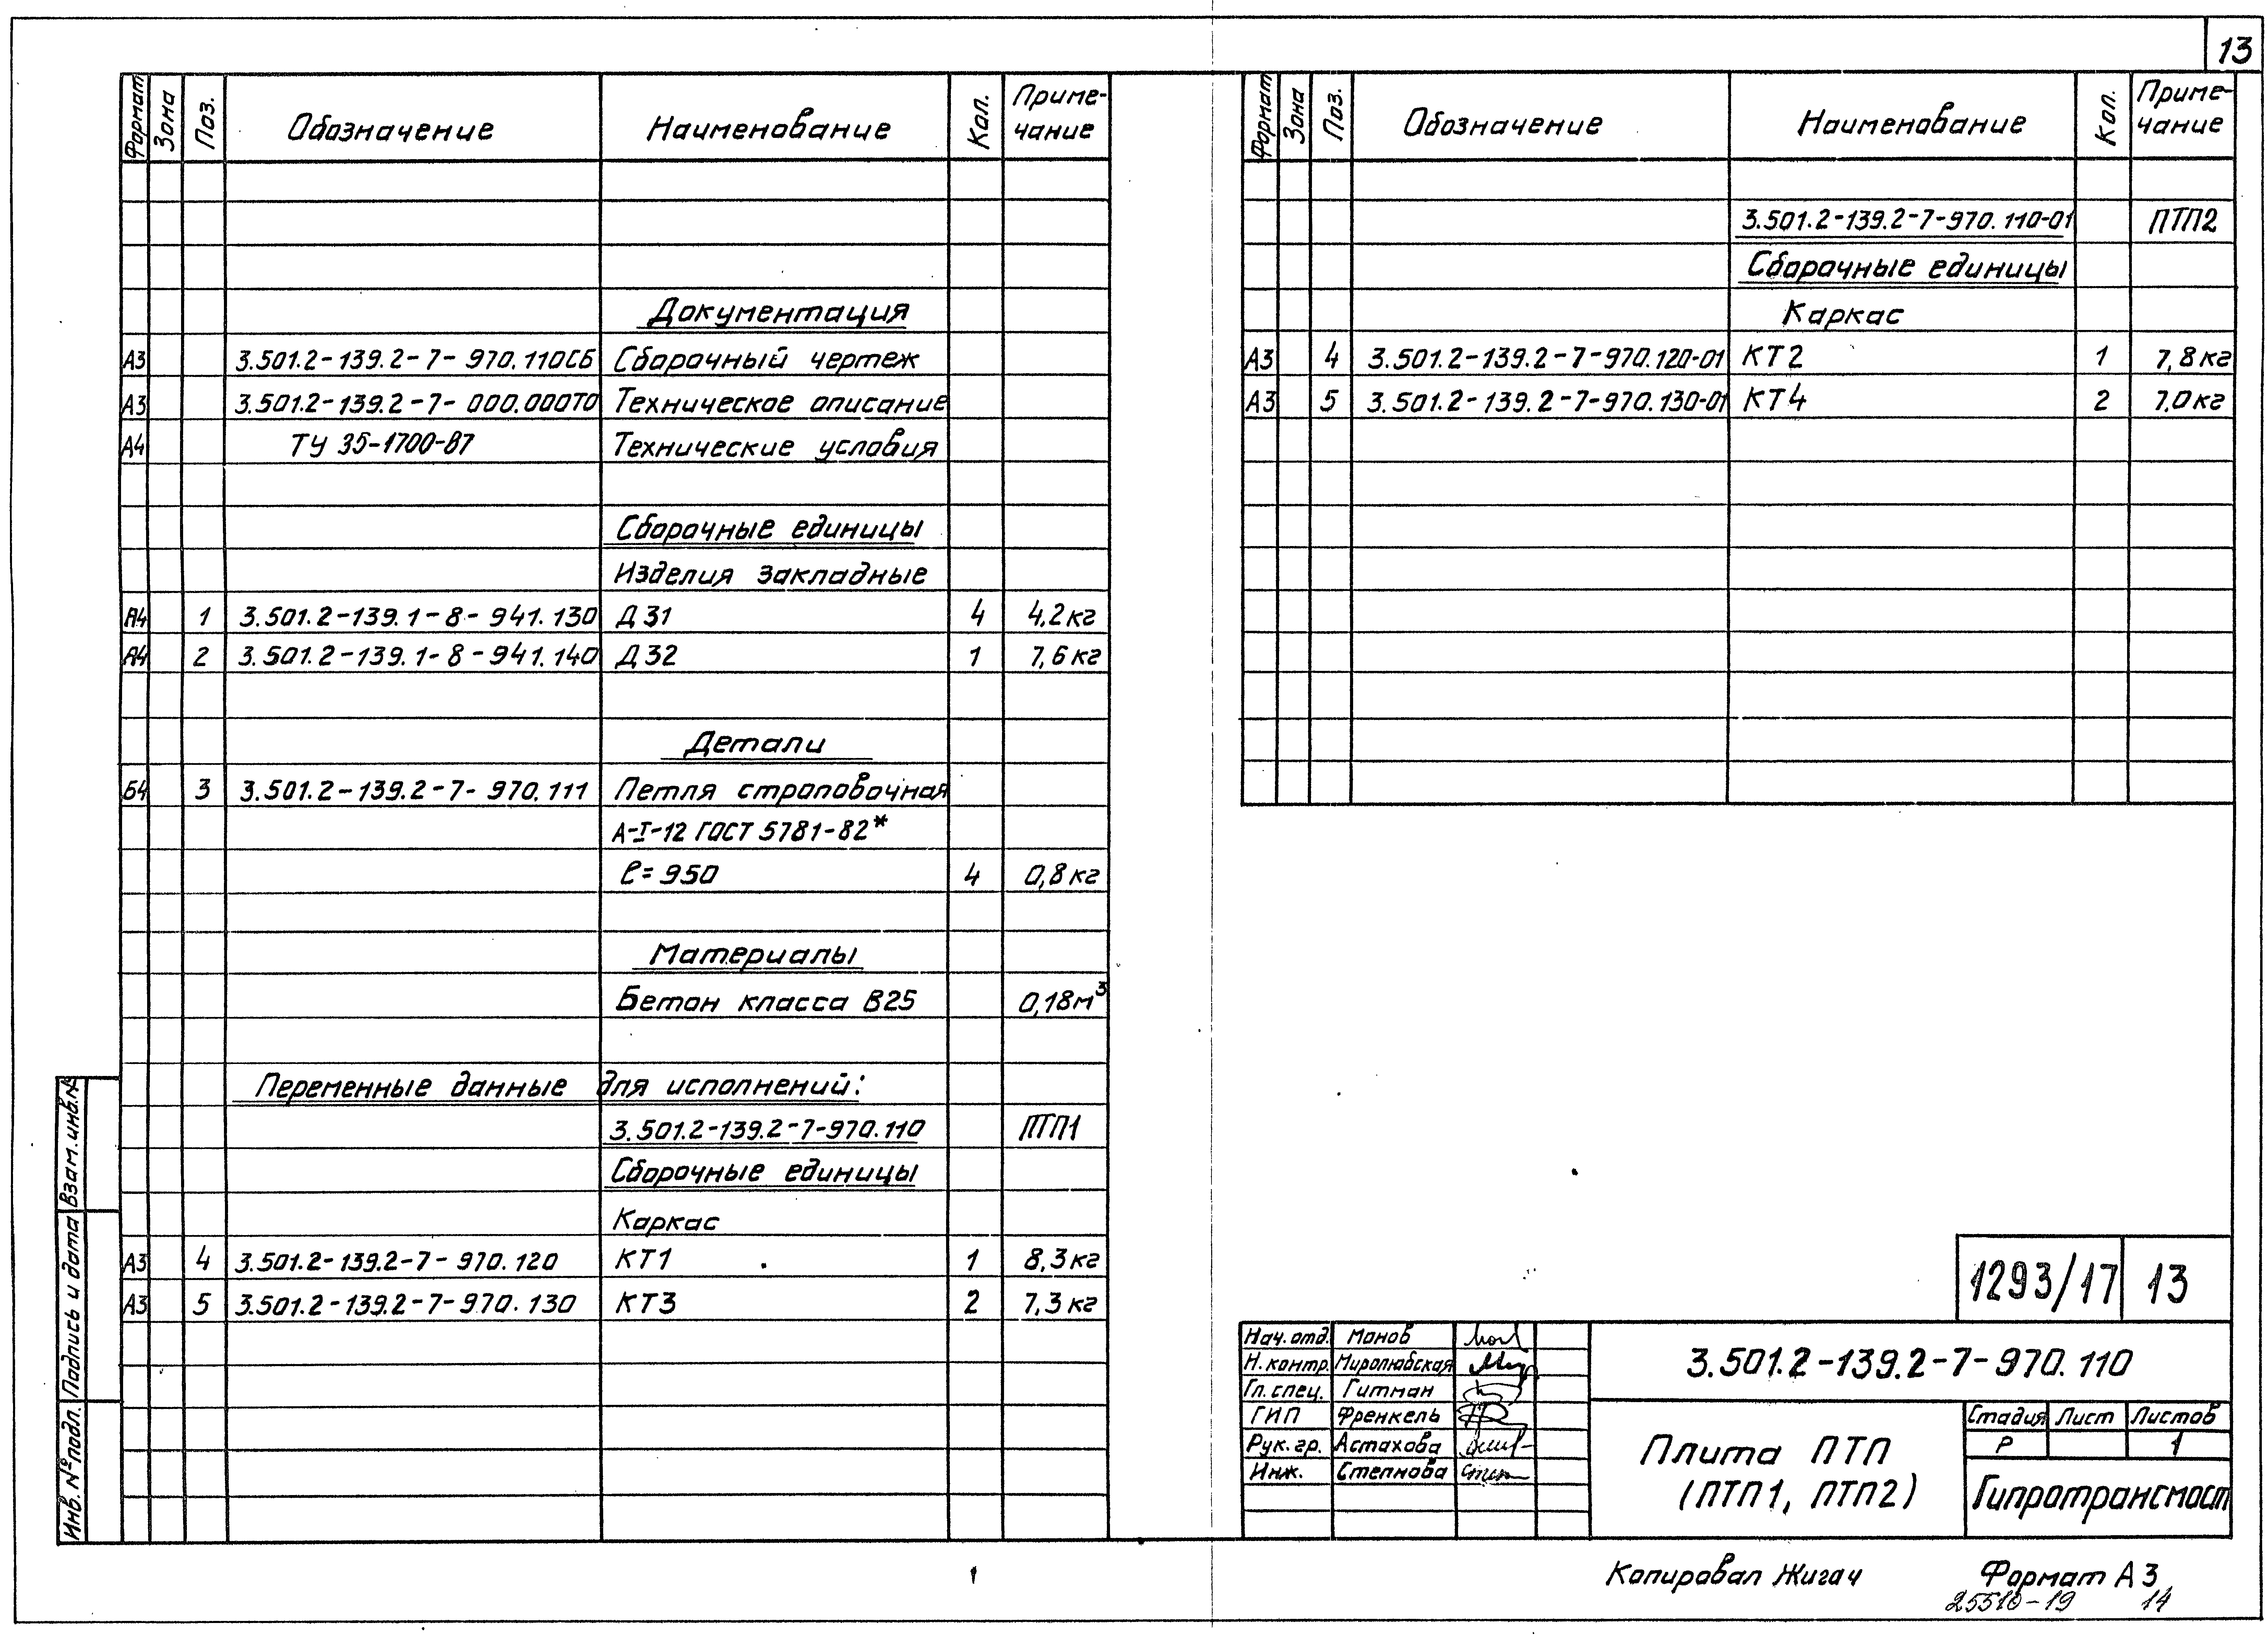 13
Формат Зона Поз. Обозначение Наименование Кол. Приме-
чание
Документация
А3 3.501.2-139.2-7-970.110СБ Сборочный чертеж
А3 3.501.2-139.2-7-000.000ТО Техническое описание
А4 ТУ 35-1700-87 Технические условия
Сборочные единицы
Изделия закладные
А4 1 3.501.2-139.1-8-941.130 Д31 4 4,2кг
А4 2 3.501.2-139.1-8-941.140 Д32 1 7,6кг
Детали
Б4 3 3.501.2-139.2-7-970.111 Петля строповочная
А-I-12 ГОСТ 5781-82*
ℓ=950 4 0,8кг
Материалы
Бетон класса В25 0,18м³
Переменные данные для исполнений:
3.501.2-139.2-7-970.110 ПТП1
Сборочные единицы
Каркас
А3 4 3.501.2-139.2-7-970.120 КТ1 1 8,3кг
А3 5 3.501.2-139.2-7-970.130 КТ3 2 7,3кг
Формат Зона Поз. Обозначение Наименование Кол. Приме-
чание
3.501.2-139.2-7-970.110-01 ПТП2
Сборочные единицы
Каркас
А3 4 3.501.2-139.2-7-970.120-01 КТ2 1 7,8кг
А3 5 3.501.2-139.2-7-970.130-01 КТ4 2 7,0кг
Взам.инв.№
Подпись и дата
Инв.№подл.
1293/17 13
Нач.отд. Монов
Н.контр. Миролюбская
Гл.спец. Гитман
ГИП Френкель
Рук.гр. Астахова
Инж. Степнова
3.501.2-139.2-7-970.110
Плита ПТП
(ПТП1, ПТП2)
Стадия Лист Листов
Р 1
Гипротрансмост
Копировал Жигач Формат А3
25510-19 14